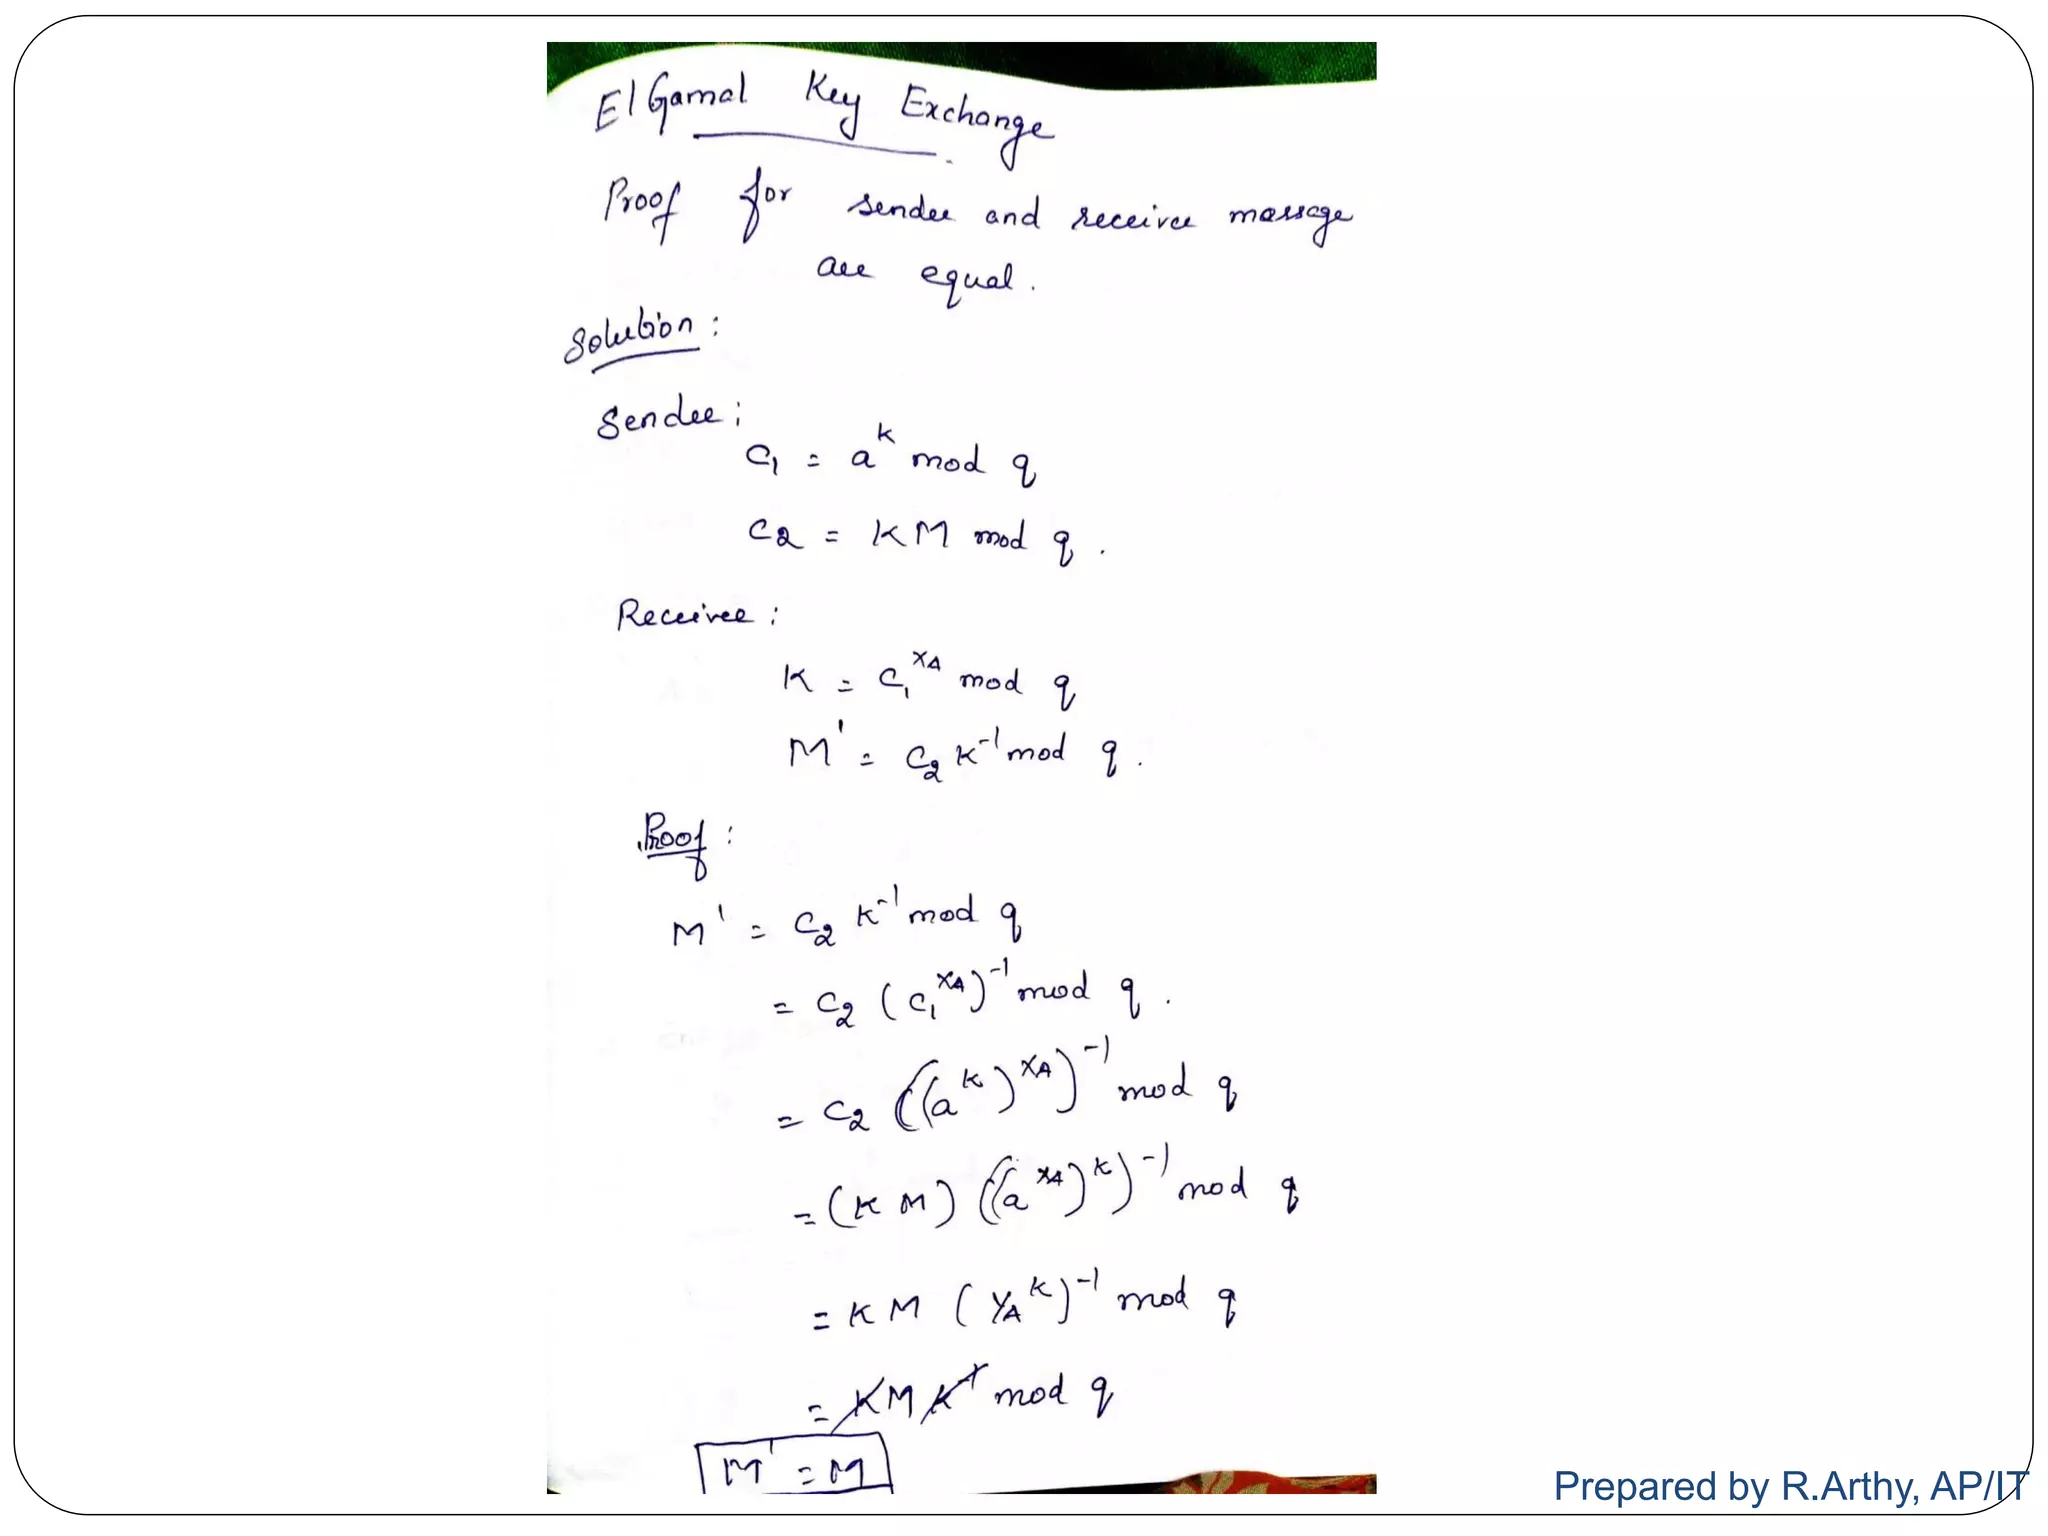 ElGamal Key Exchange
Proof for sender and receiver message
are equal.
Solution:
Sender:
C₁ = a^k mod q
C₂ = KM mod q.
Receiver:
K = C₁^XA mod q
M' = C₂ K⁻¹ mod q.
Proof:
M' = C₂ K⁻¹ mod q
= C₂ (C₁^XA)⁻¹ mod q.
= C₂ ((a^k)^XA)⁻¹ mod q
= (K M) ((a^XA)^k)⁻¹ mod q
= K M (YA^k)⁻¹ mod q
= K M K⁻¹ mod q
M' = M
Prepared by R.Arthy, AP/IT